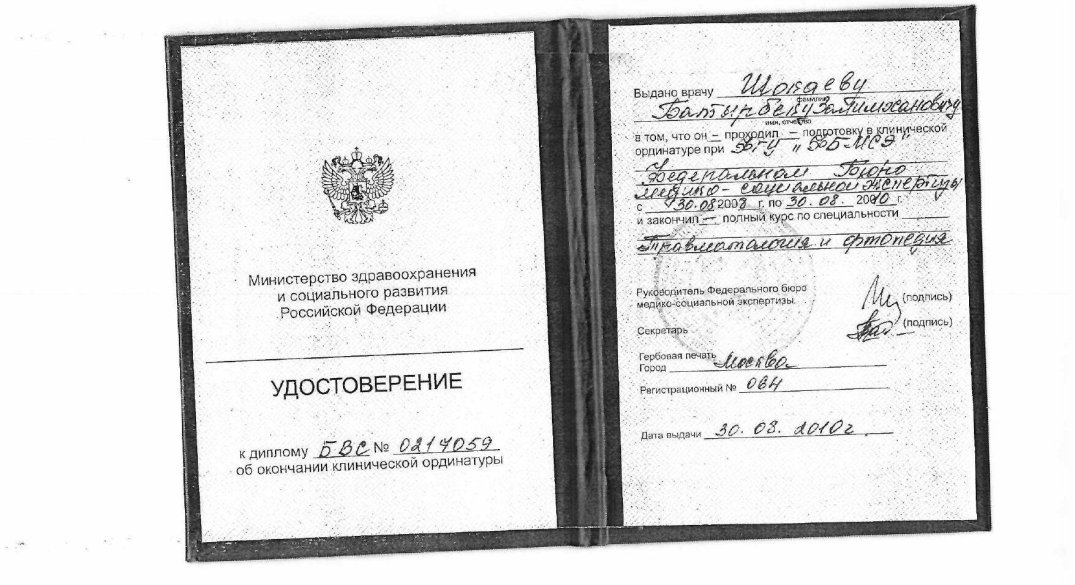 Министерство здравоохранения
и социального развития
Российской Федерации
УДОСТОВЕРЕНИЕ
к диплому БВС № 0217059
об окончании клинической ординатуры
Выдано врачу
фамилия
имя, отчество
в том, что он – проходил – подготовку в клинической
ординатуре при ФГУ "ФБМСЭ"
Федеральном Бюро
медико-социальной экспертизы
с 30.08 2008 г. по 30.08. 2010 г.
и закончил – полный курс по специальности
Травматология и ортопедия
Руководитель Федерального бюро
медико-социальной экспертизы
(подпись)
Секретарь
(подпись)
Гербовая печать
Город Москва
Регистрационный №
Дата выдачи 30. 08. 2010г.